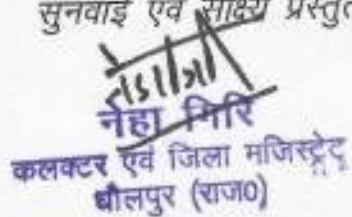 सुनवाई एवं साक्ष्य प्रस्तुत
नेहा गिरि
कलक्टर एवं जिला मजिस्ट्रेट
धौलपुर (राज0)